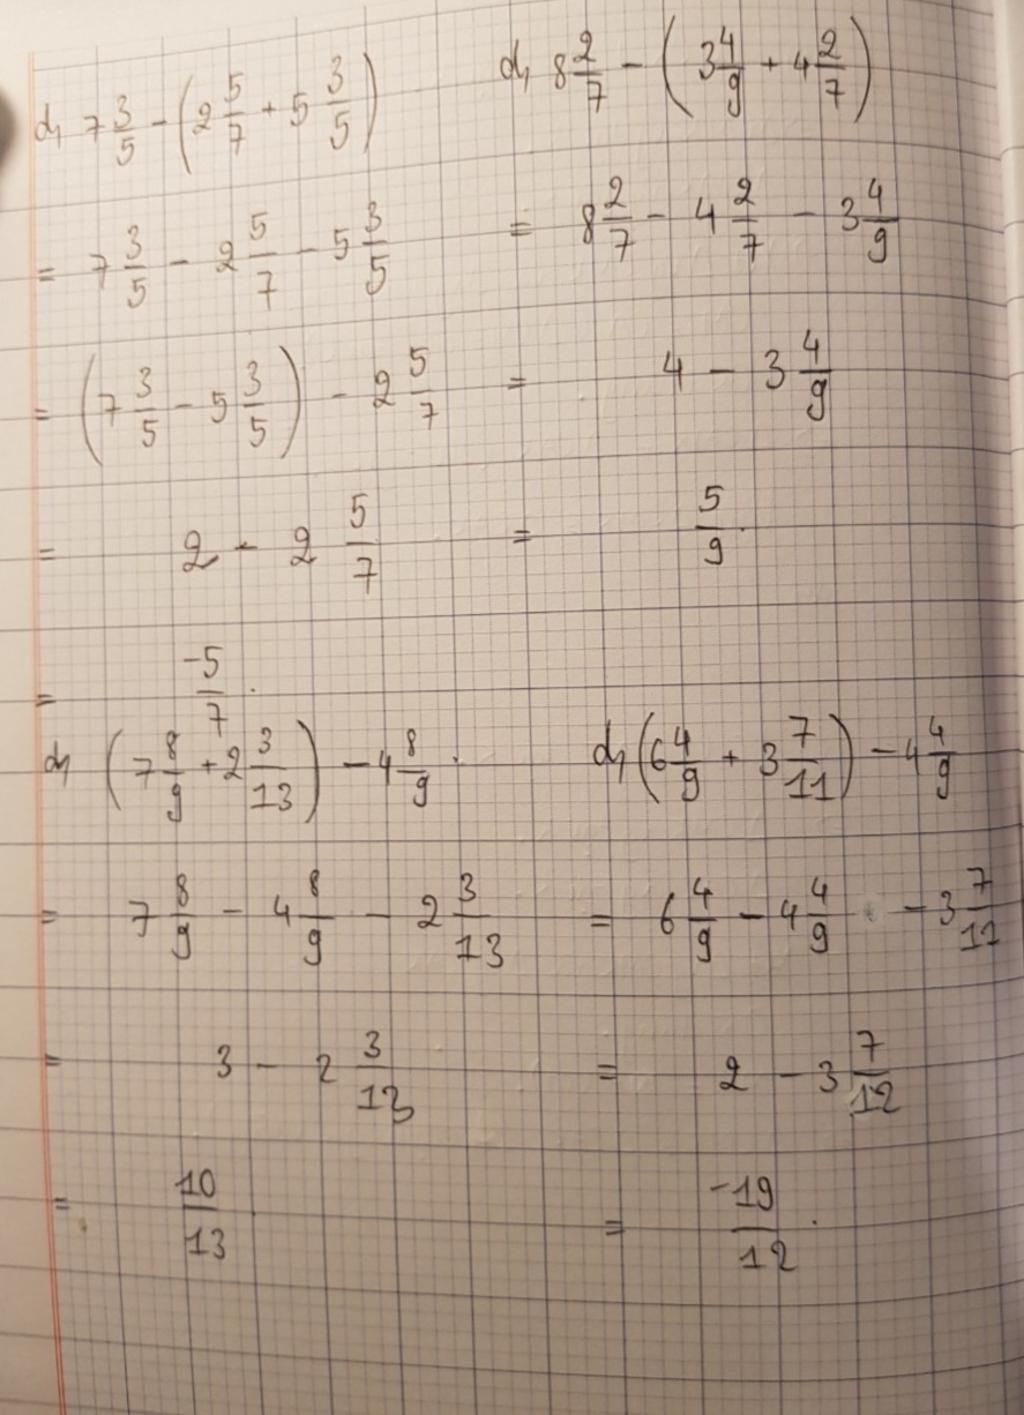 d, 7 3/5 - (2 5/7 + 5 3/5)
= 7 3/5 - 2 5/7 - 5 3/5
= (7 3/5 - 5 3/5) - 2 5/7
= 2 - 2 5/7
= -5/7.
d, 8 2/7 - (3 4/9 + 4 2/7)
= 8 2/7 - 4 2/7 - 3 4/9
= 4 - 3 4/9
= 5/9.
d, (7 8/9 + 2 3/13) - 4 8/9.
= 7 8/9 - 4 8/9 - 2 3/13
= 3 - 2 3/13
= 10/13
d, (6 4/9 + 3 7/11) - 4 4/9
= 6 4/9 - 4 4/9 - 3 7/11
= 2 - 3 7/12
= -19/12.